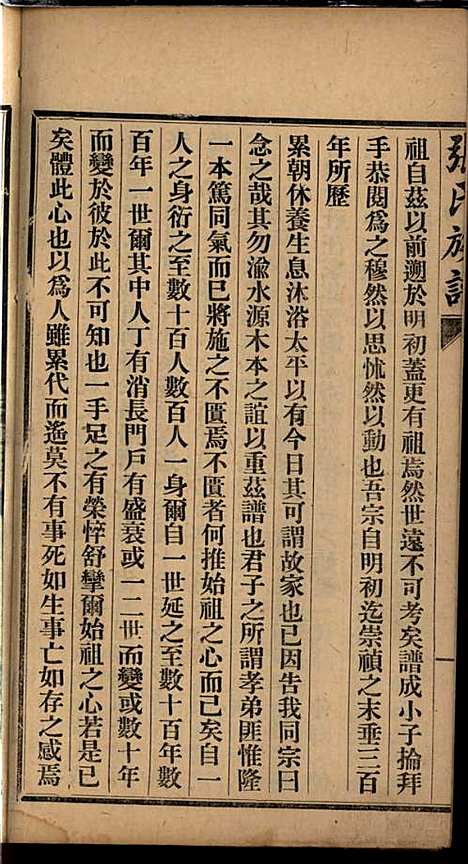 張氏族譜
祖自茲以前遡於明初蓋更有祖焉然世遠不可考矣譜成小子掄拜
手恭閱爲之穆然以思怵然以動也吾宗自明初迄崇禎之末垂三百
年所歷
累朝休養生息沐浴太平以有今日其可謂故家也已因告我同宗曰
念之哉其勿渝水源木本之誼以重茲譜也君子之所謂孝弟匪惟隆
一本篤同氣而已將施之不匱焉不匱者何推始祖之心而已矣自一
人之身衍之至數十百人數百人一身爾自一世延之至數十百年數
百年一世爾其中人丁有消長門戶有盛衰或一二世而變或數十年
而變於彼於此不可知也一手足之有榮悴舒攣爾始祖之心若是已
矣體此心也以爲人雖累代而遙莫不有事死如生事亡如存之感焉